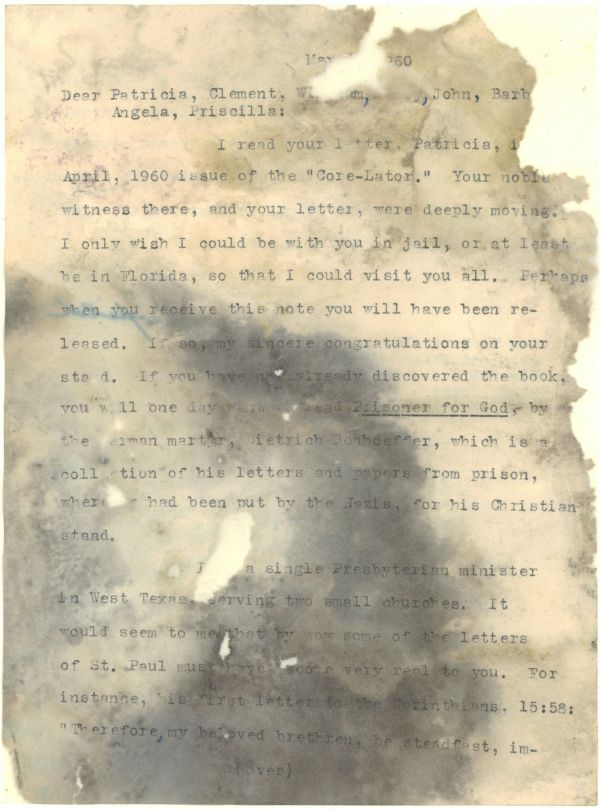 1960
Dear Patricia, Clement, John,
Angela, Priscilla:
I read your letter, Patricia,
April, 1960 issue of the "Core-Lator." Your noble
witness there, and your letter, were deeply moving.
I only wish I could be with you in jail, or at least
be in Florida, so that I could visit you all. Perhaps
when you receive this note you will have been re-
leased. If so, my sincere congratulations on your
stand. If you have not already discovered the book,
you will one day want read Prisoner for God, by
the German martyr, Dietrich Bonhoeffer, which is a
collection of his letters and papers from prison,
where had been put by the Nazis, for his Christian
stand.
a single Presbyterian minister
in West Texas, serving two small churches. It
would seem to me that by now some of the letters
of St. Paul must have become very real to you. For
instance, his first letter to the Corinthians, 15:58:
"Therefore, my beloved brethren, be steadfast, im-
(over)